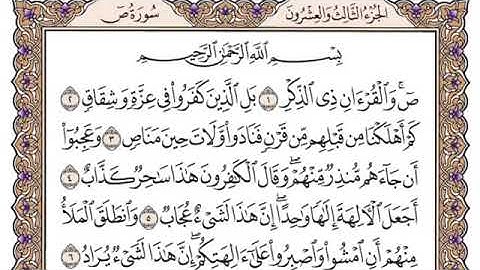 الجزء الثالث والعشرون سورة ص
بِسْمِ ٱللَّهِ ٱلرَّحْمَٰنِ ٱلرَّحِيمِ
صٓ ۚ وَٱلْقُرْءَانِ ذِى ٱلذِّكْرِ ١ بَلِ ٱلَّذِينَ كَفَرُوا۟ فِى عِزَّةٍ وَشِقَاقٍ ٢
كَمْ أَهْلَكْنَا مِن قَبْلِهِم مِّن قَرْنٍ فَنَادَوا۟ وَّلَاتَ حِينَ مَنَاصٍ ٣ وَعَجِبُوٓا۟
أَن جَآءَهُم مُّنذِرٌ مِّنْهُمْ ۖ وَقَالَ ٱلْكَٰفِرُونَ هَٰذَا سَٰحِرٌ كَذَّابٌ ٤
أَجَعَلَ ٱلْءَالِهَةَ إِلَٰهًا وَٰحِدًا ۖ إِنَّ هَٰذَا لَشَىْءٌ عُجَابٌ ٥ وَٱنطَلَقَ ٱلْمَلَأُ
مِنْهُمْ أَنِ ٱمْشُوا۟ وَٱصْبِرُوا۟ عَلَىٰٓ ءَالِهَتِكُمْ ۖ إِنَّ هَٰذَا لَشَىْءٌ يُرَادُ ٦